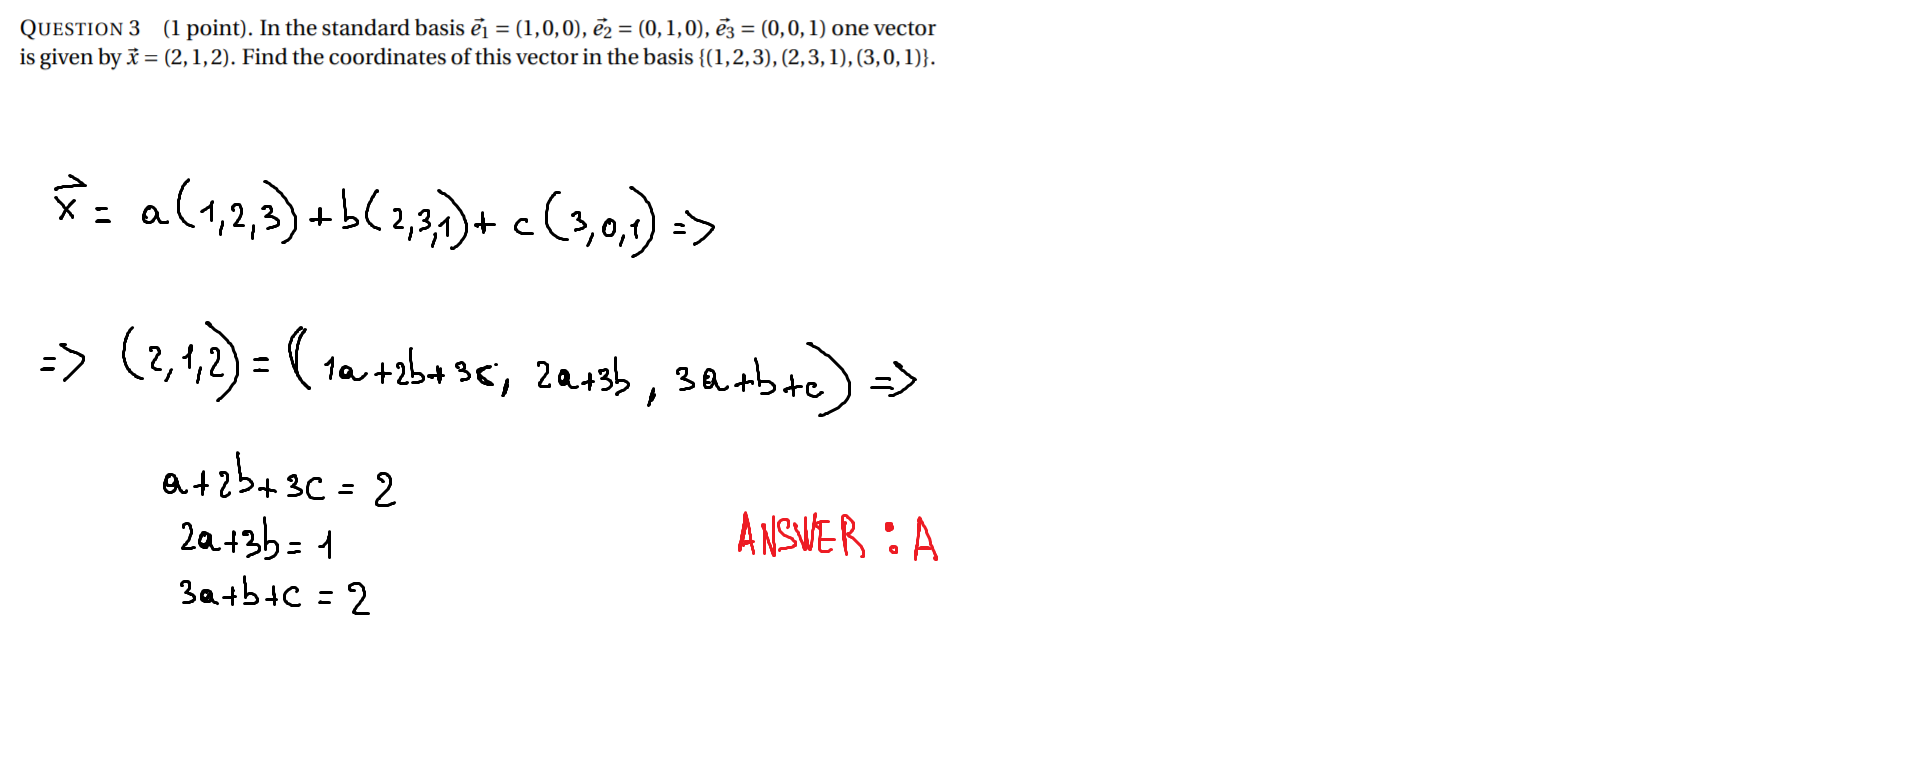 QUESTION 3 (1 point). In the standard basis e⃗₁ = (1,0,0), e⃗₂ = (0,1,0), e⃗₃ = (0,0,1) one vector
is given by x⃗ = (2,1,2). Find the coordinates of this vector in the basis {(1,2,3),(2,3,1),(3,0,1)}.
x⃗ = a(1,2,3)+b(2,3,1)+ c(3,0,1) =>
=> (2,1,2) = (1a+2b+3c, 2a+3b, 3a+b+c) =>
a+2b+3c = 2
2a+3b = 1
ANSWER : A
3a+b+c = 2